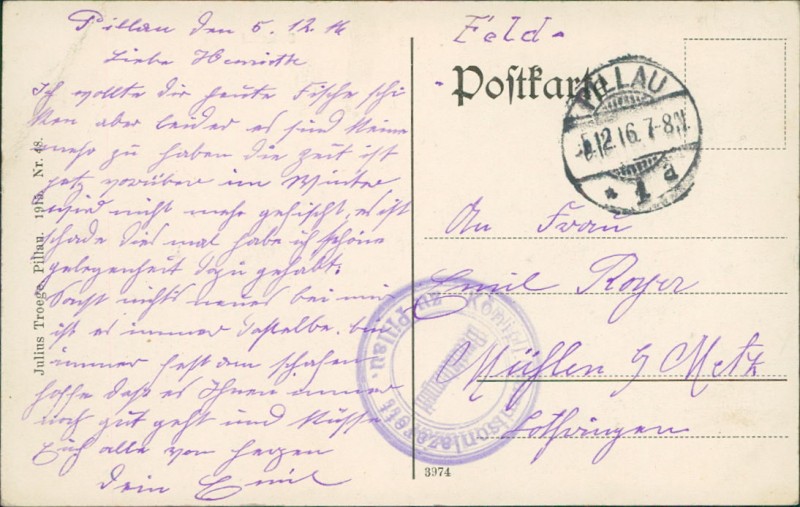 Pillau den 5.12.16
Liebe Henriette
Ich wollte dir heute Fische schi
ken aber leider es sind keine
mehr zu haben die zeit ist
jetz vorüber im Winter
wird nicht mehr gefischt, es ist
schade dies mal habe ich schöne
gelegenheit dazu gehabt.
Sonst nichts neues bei mir
ist es immer dasselbe. bin
immer fest am schafen
hoffe daß es Ihnen immer
noch gut geht und Küsse
Euch alle von herzen
Dein Emil
Julius Troege, Pillau. 1915. Nr. 48.
Feld-
Postkarte
PILLAU
5.12.16.7-8N.
* 1 a
An Frau
Emil Royer
Mühlen b/ Metz
Lothringen
Königl. Garnisonlazarett Pillau
3974